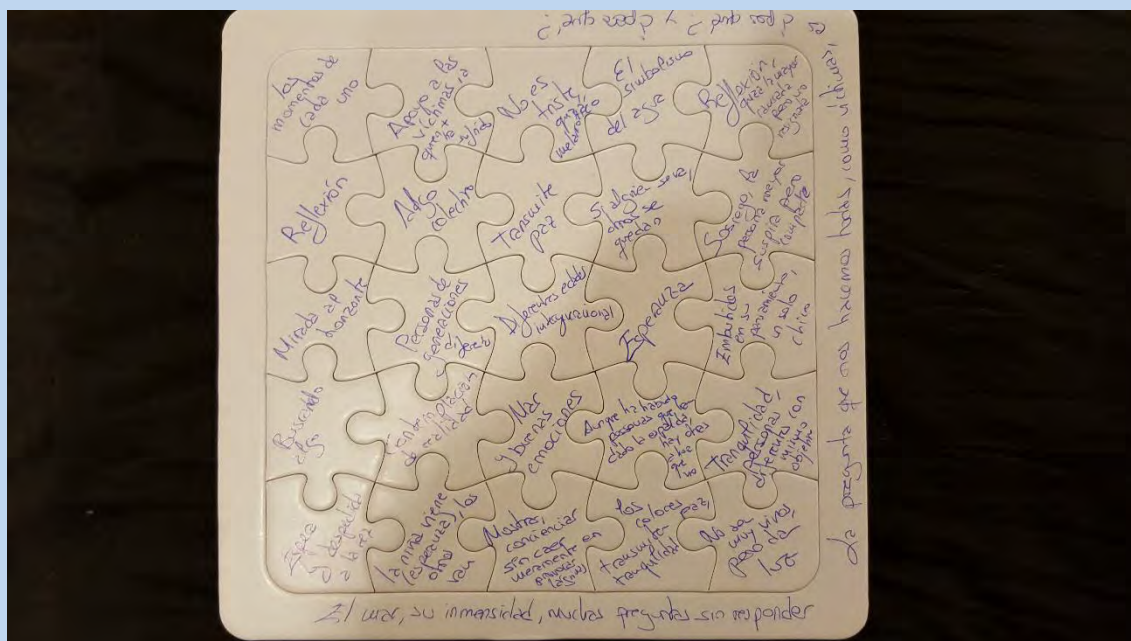 ¿por qué? y ¿para qué?
los
momentos de
cada uno
Apoyo a las
víctimas, a
quien + ha
sufrido
No es
triste,
quizá
melancólico
El
simbolismo
del agua
Reflexión,
quizá mayor
cansada
pero no
resignada
Reflexión
Algo
colectivo
Transmite
paz
Si alguien se va,
otros se
quedan
Sosiego, la
persona mayor
suspira pero
comparte
Mirada al
horizonte
Personas de
generaciones
diferentes
Diferentes edades
intergeneracional
Esperanza
Embutidos
en su
pensamiento,
un solo
chico
Buscando
algo
Contemplación
de realidad
Mar
y buenas
emociones
Aunque ha habido
personas que han
dado la espalda,
hay otras
que no
Tranquilidad
personas
diferentes con
mismo
objetivo
Espera
y despedida
a la vez
la niña viene
(esperanza), los
otros
van
Mostrar,
concienciar
sin caer
meramente en
provocar
lágrimas
los
colores
transmiten paz,
tranquilidad
No son
muy vivos,
pero da
luz
El mar, su inmensidad, muchas preguntas sin responder
La pregunta que nos hacemos todas, como víctimas, es